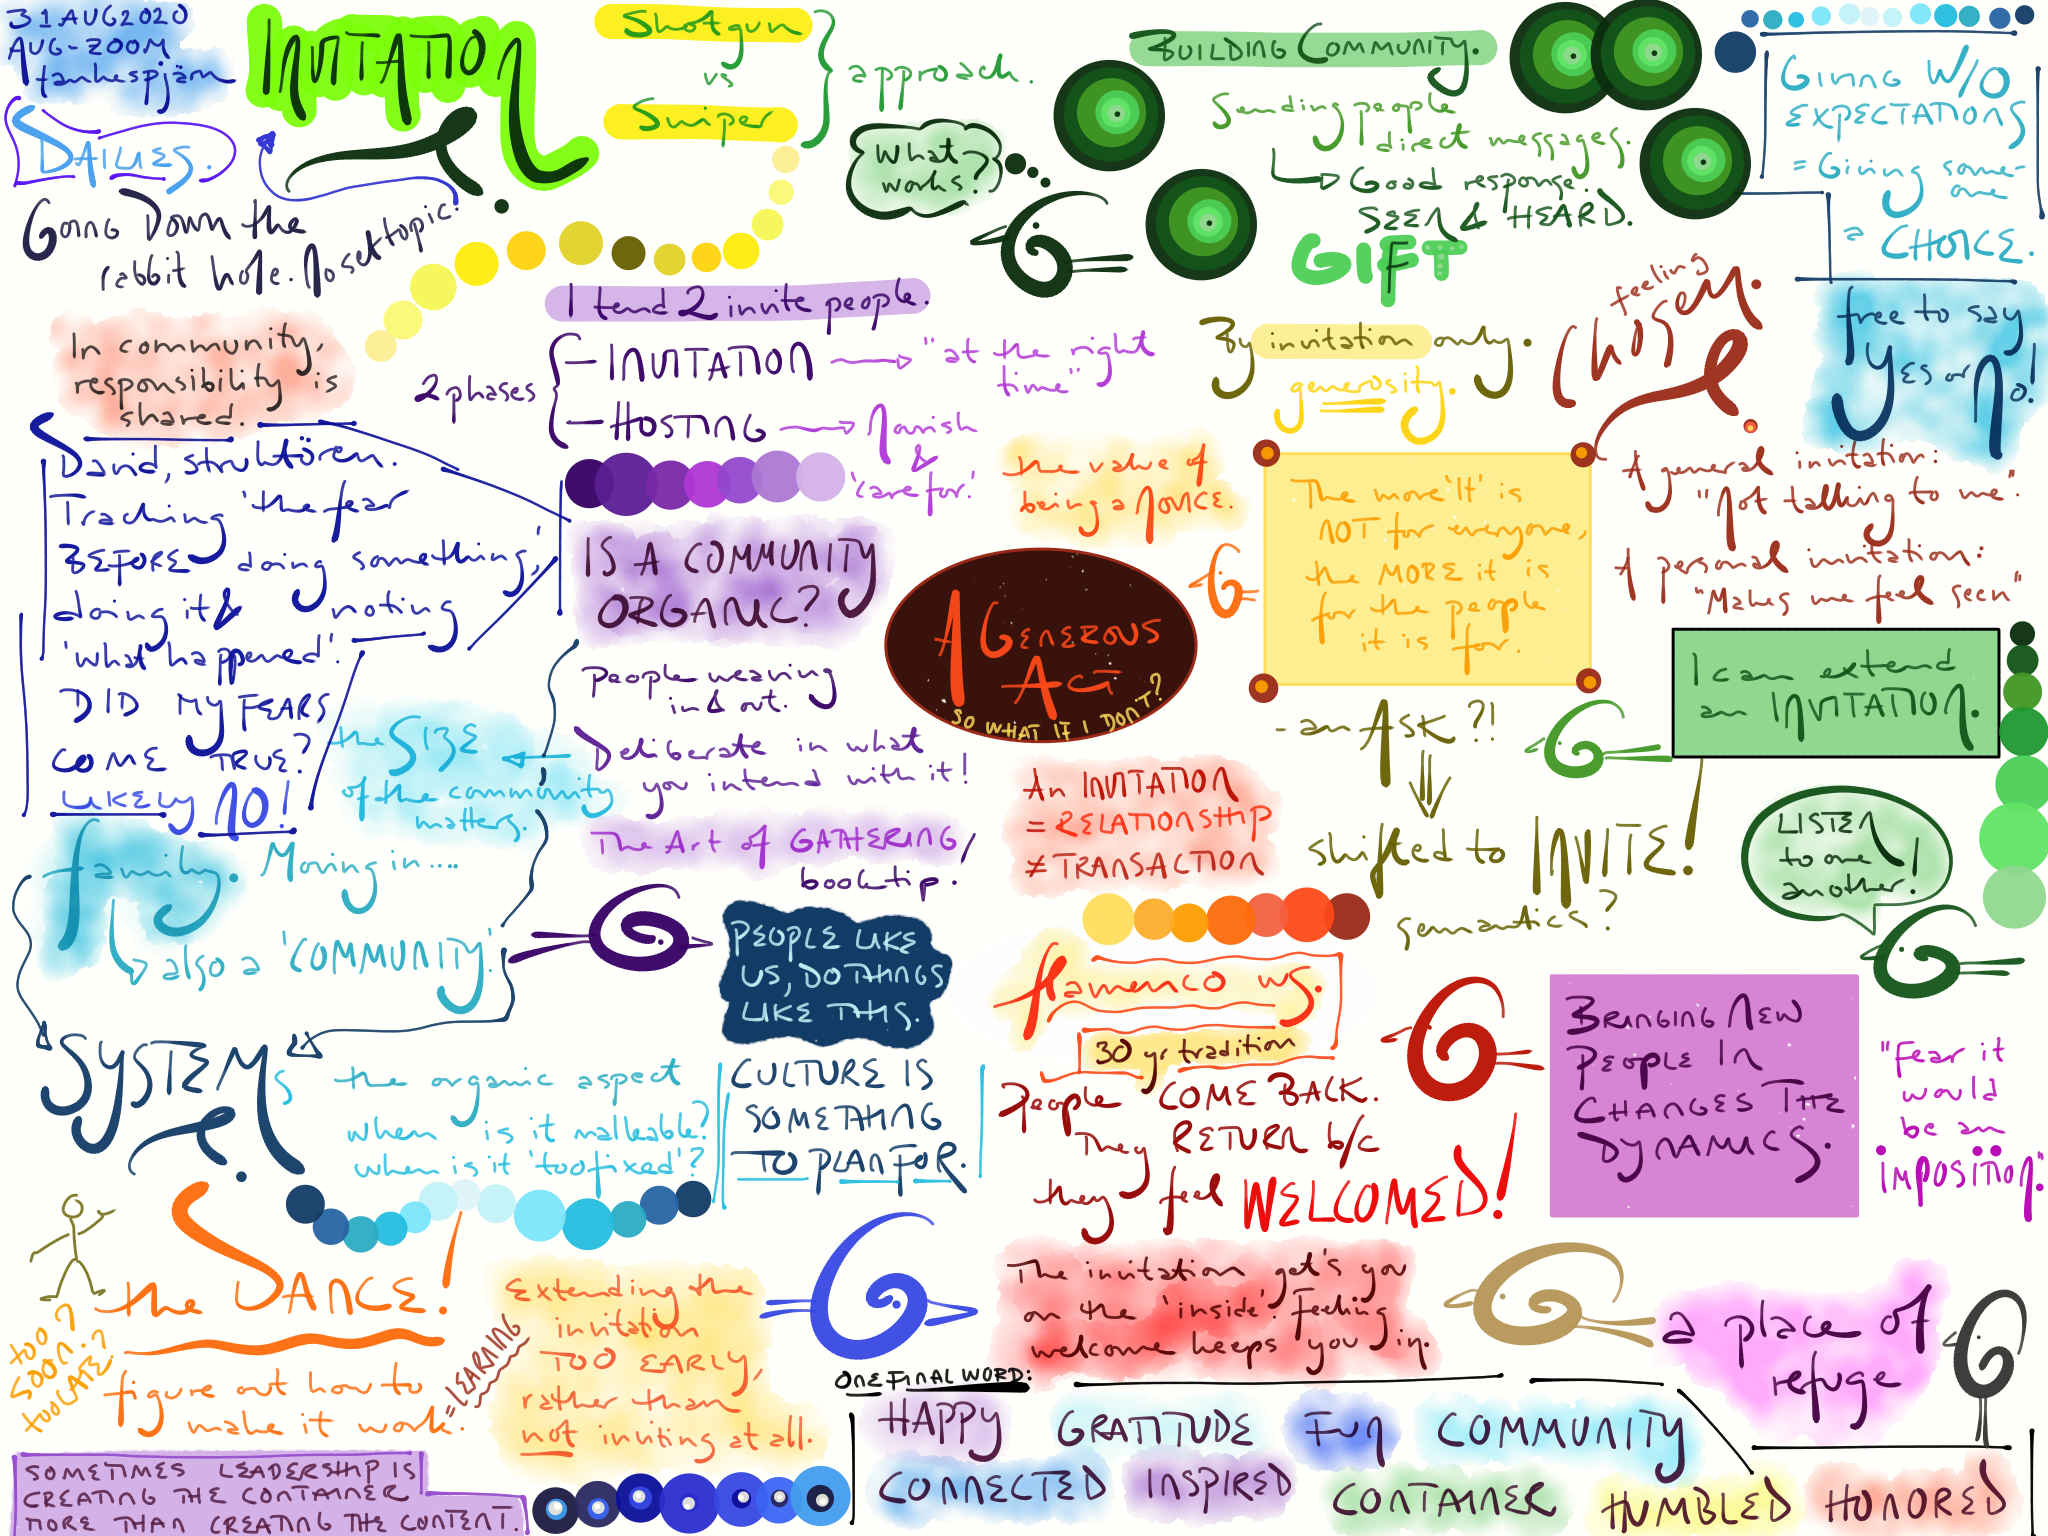 31 AUG 2020
AUG-ZOOM
tankespjärn
DAILIES.
INVITATION
Going Down the
rabbit hole. No set topic.
Shotgun
vs
Sniper
approach.
What
works?
BUILDING COMMUNITY.
Sending people
direct messages.
Good response.
SEEN & HEARD.
GIFT
GIVING W/O
EXPECTATIONS
= Giving some-
one
a CHOICE.
free to say
YES or NO!
In community,
responsibility is
shared.
I tend 2 invite people.
2 phases
- INVITATION
"at the right
time"
- HOSTING
Nourish
&
'care for.'
By invitation only.
generosity.
feeling
CHOSEN.
A general invitation:
"Not talking to me".
A personal invitation:
"Makes me feel seen"
David, struktören.
Tracking 'the fear
BEFORE doing something,'
doing it & noting
'what happened'.
DID MY FEARS
COME TRUE?
LIKELY NO!
IS A COMMUNITY
ORGANIC?
People weaving
in & out.
Deliberate in what
you intend with it!
The Art of GATHERING,
booktip.
the SIZE
of the community
matters.
the value of
being a NOVICE.
A GENEROUS
ACT
SO WHAT IF I DON'T?
The more 'It' is
NOT for everyone,
the MORE it is
for the people
it is for.
- an ASK?!
shifted to INVITE!
semantics?
I can extend
an INVITATION.
LISTEN
to one
another!
An INVITATION
= RELATIONSHIP
≠ TRANSACTION
family. Moving in....
also a 'COMMUNITY.'
SYSTEMS
the organic aspect
when is it malleable?
when is it 'too fixed'?
PEOPLE LIKE
US, DO THINGS
LIKE THIS.
CULTURE IS
SOMETHING
TO PLAN FOR.
flamenco ws.
30 yr tradition
People COME BACK.
They RETURN b/c
they feel WELCOMED!
BRINGING NEW
PEOPLE IN
CHANGES THE
DYNAMICS.
"Fear it
would
be an
IMPOSITION."
the DANCE!
too soon?
too LATE?
figure out how to
make it work.
= LEARNING
Extending the
invitation
TOO EARLY,
rather than
not inviting at all.
The invitation get's you
on the 'inside'. Feeling
welcome keeps you in.
a place of
refuge
SOMETIMES LEADERSHIP IS
CREATING THE CONTAINER
MORE THAN CREATING THE CONTENT.
ONE FINAL WORD:
HAPPY GRATITUDE FUN COMMUNITY
CONNECTED INSPIRED CONTAINER HUMBLED HONORED